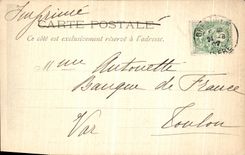 Imprimé
CARTE POSTALE
Ce côté est exclusivement réservé à l'adresse.
Mme Antonette
Banque de France
Var Toulon